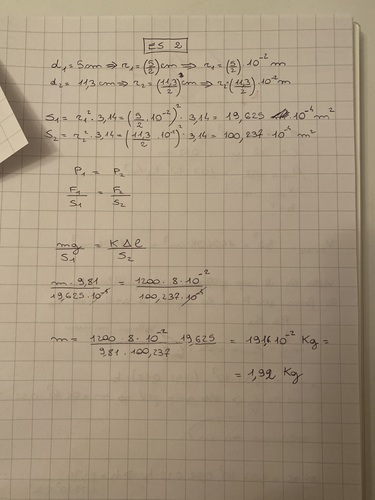 ES 2
d₁ = 5cm ⇒ r₁ = (5/2)cm ⇒ r₁ = (5/2)·10⁻² m
d₂ = 11,3cm ⇒ r₂ = (11,3/2)cm ⇒ r₂ = (11,3/2)·10⁻² m
S₁ = r₁² · 3,14 = (5/2 · 10⁻²)² · 3,14 = 19,625 · 10⁻⁴ m²
S₂ = r₂² · 3,14 = (11,3/2 · 10⁻²)² · 3,14 = 100,237 · 10⁻⁴ m²
P₁ = P₂
F₁/S₁ = F₂/S₂
mg/S₁ = KΔl/S₂
m · 9,81/19,625·10⁻⁴ = 1200 · 8 · 10⁻²/100,237·10⁻⁴
m = 1200 · 8 · 10⁻² · 19,625/9,81 · 100,237 = 191,6 10⁻² Kg =
= 1,92 Kg